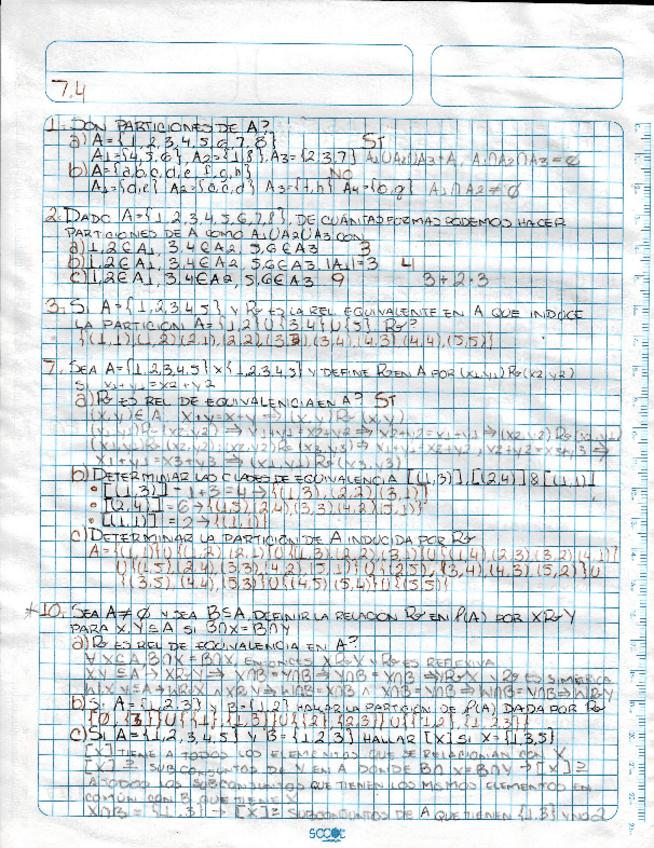 7.4
1. SON PARTICIONES DE A?
a) A={1,2,3,4,5,6,7,8} SI
A1={4,5,6}, A2={1,8}, A3={2,3,7} A1∪A2∪A3=A, A1∩A2∩A3=∅
b) A={a,b,c,d,e,f,g,h} NO
A1={d,e} A2={a,c,d} A3={f,h} A4={b,g} A1∩A2≠∅
2. DADO A={1,2,3,4,5,6,7,8}, DE CUÁNTAS FORMAS PODEMOS HACER
PARTICIONES DE A COMO A1∪A2∪A3 CON
a) 1,2∈A1, 3,4∈A2, 5,6∈A3 3
b) 1,2∈A1, 3,4∈A2, 5,6∈A3, |A1|=3 4
c) 1,2∈A1, 3,4∈A2, 5,6∈A3 9 3+2·3
3. SI A={1,2,3,4,5} Y R ES LA REL EQUIVALENTE EN A QUE INDUCE
LA PARTICION A={1,2}∪{3,4}∪{5}, R?
{(1,1),(1,2),(2,1),(2,2),(3,3),(3,4),(4,3),(4,4),(5,5)}
7. SEA A={1,2,3,4,5}x{1,2,3,4,5} Y DEFINE R EN A POR (x1,y1)R(x2,y2)
SI x1+y1=x2+y2
a) R ES REL DE EQUIVALENCIA EN A? SI
(x,y)∈A, x+y=x+y → (x,y)R(x,y)
(x1,y1)R(x2,y2) → x1+y1=x2+y2 → x2+y2=x1+y1 → (x2,y2)R(x1,y1)
(x1,y1)R(x2,y2), (x2,y2)R(x3,y3) → x1+y1=x2+y2, x2+y2=x3+y3 →
x1+y1=x3+y3 → (x1,y1)R(x3,y3)
b) DETERMINAR LAS CLASES DE EQUIVALENCIA [(1,3)],[(2,4)] & [(1,1)]
• [(1,3)] = 1+3=4 → {(1,3),(2,2),(3,1)}
• [(2,4)] = 6 → {(1,5),(2,4),(3,3),(4,2),(5,1)}
• [(1,1)] = 2 → {(1,1)}
c) DETERMINAR LA PARTICIÓN DE A INDUCIDA POR R
A={(1,1)}∪{(1,2),(2,1)}∪{(1,3),(2,2),(3,1)}∪{(1,4),(2,3),(3,2),(4,1)}
∪{(1,5),(2,4),(3,3),(4,2),(5,1)}∪{(2,5),(3,4),(4,3),(5,2)}∪
{(3,5),(4,4),(5,3)}∪{(4,5),(5,4)}∪{(5,5)}
*10. SEA A≠∅ Y SEA B⊆A, DEFINIR LA RELACION R EN P(A) POR XRY
PARA X,Y⊆A SI B∩X=B∩Y
a) R ES REL DE EQUIVALENCIA EN A?
∀X⊆A, B∩X=B∩X, ENTONCES XRX Y R ES REFLEXIVA
X,Y⊆A → XRY → X∩B=Y∩B → Y∩B=X∩B → YRX Y R ES SIMÉRICA
W,X,Y⊆A → WRX ∧ XRY → W∩B=X∩B ∧ X∩B=Y∩B → W∩B=Y∩B → WRY
b) SI A={1,2,3} Y B={1,2} HALLAR LA PARTICIÓN DE P(A) DADA POR R
{∅,{3}}∪{{1},{1,3}}∪{{2},{2,3}}∪{{1,2},{1,2,3}}
c) SI A={1,2,3,4,5} Y B={1,2,3} HALLAR [X] SI X={1,3,5}
[X] TIENE A TODOS LOS ELEMENTOS QUE SE RELACIONAN CON X
[X] = SUBCONJUNTOS DE Y EN A DONDE B∩X=B∩Y → [X] =
A TODOS LOS SUBCONJUNTOS QUE TIENEN LOS MISMOS ELEMENTOS EN
COMÚN CON B QUE TIENE X
X∩B = {1,3} → [X] = SUBCONJUNTOS DE A QUE TIENEN {1,3} Y NO 2